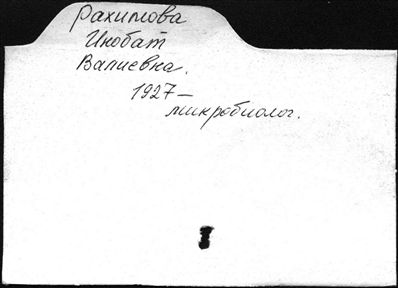 Рахимова
Инобат
Валиевна.
1927 –
микробиолог.